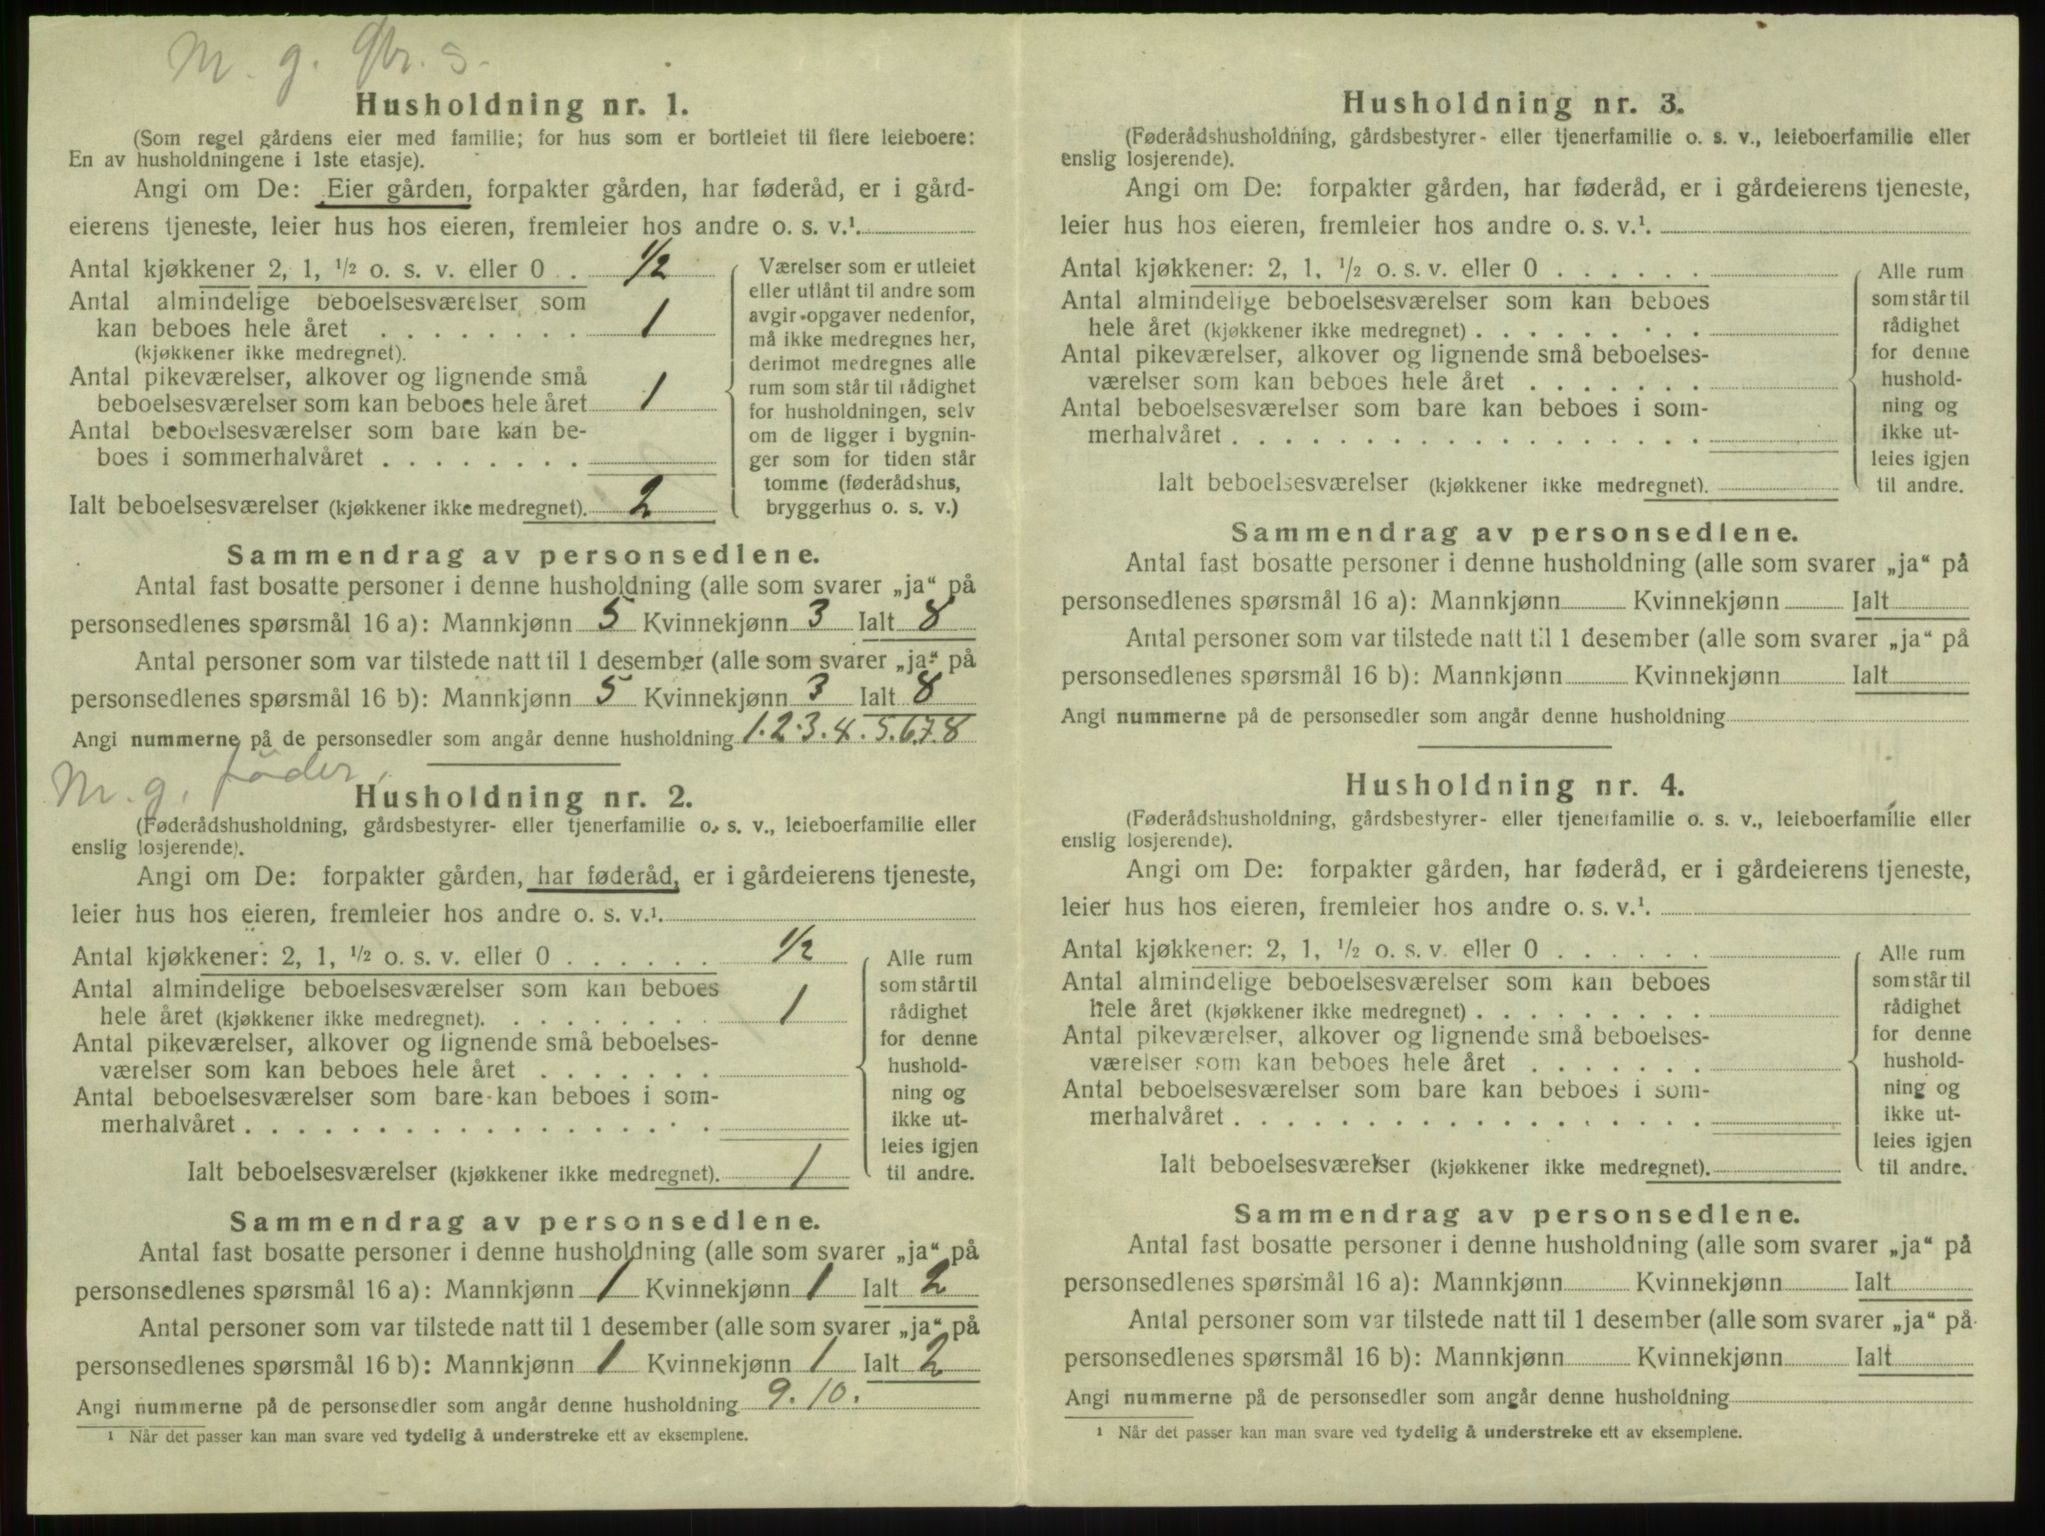 M. g. gbr. s.
Husholdning nr. 1.
(Som regel gårdens eier med familie; for hus som er bortleiet til flere leieboere:
En av husholdningene i 1ste etasje).
Angi om De: Eier gården, forpakter gården, har føderåd, er i gård-
eierens tjeneste, leier hus hos eieren, fremleier hos andre o. s. v.¹.
Antal kjøkkener 2, 1, ½ o. s. v. eller 0 . . ½
Antal almindelige beboelsesværelser som
kan beboes hele året . . . . . . . . 1
(kjøkkener ikke medregnet).
Antal pikeværelser, alkover og lignende små
beboelsesværelser som kan beboes hele året 1
Antal beboelsesværelser som bare kan be-
boes i sommerhalvåret . . . . . . .
Ialt beboelsesværelser (kjøkkener ikke medregnet). 2
Værelser som er utleiet
eller utlånt til andre som
avgir opgaver nedenfor,
må ikke medregnes her,
derimot medregnes alle
rum som står til rådighet
for husholdningen, selv
om de ligger i bygnin-
ger som for tiden står
tomme (føderådshus,
bryggerhus o. s. v.)
Sammendrag av personsedlene.
Antal fast bosatte personer i denne husholdning (alle som svarer „ja“ på
personsedlenes spørsmål 16 a): Mannkjønn 5 Kvinnekjønn 3 Ialt 8
Antal personer som var tilstede natt til 1 desember (alle som svarer „ja“ på
personsedlenes spørsmål 16 b): Mannkjønn 5 Kvinnekjønn 3 Ialt 8
Angi nummerne på de personsedler som angår denne husholdning 1.2.3.4.5.6.7.8
M. g. føder.
Husholdning nr. 2.
(Føderådshusholdning, gårdsbestyrer- eller tjenerfamilie o. s. v., leieboerfamilie eller
enslig losjerende).
Angi om De: forpakter gården, har føderåd, er i gårdeierens tjeneste,
leier hus hos eieren, fremleier hos andre o. s. v.¹.
Antal kjøkkener: 2, 1, ½ o. s. v. eller 0 . . . . . . ½
Antal almindelige beboelsesværelser som kan beboes
hele året (kjøkkener ikke medregnet). . . . . . . . . 1
Antal pikeværelser, alkover og lignende små beboelses-
værelser som kan beboes hele året . . . . . . .
Antal beboelsesværelser som bare kan beboes i som-
merhalvåret . . . . . . . . . . . . . . . . . .
Ialt beboelsesværelser (kjøkkener ikke medregnet). 1
Alle rum
som står til
rådighet
for denne
hushold-
ning og
ikke ut-
leies igjen
til andre.
Sammendrag av personsedlene.
Antal fast bosatte personer i denne husholdning (alle som svarer „ja“ på
personsedlenes spørsmål 16 a): Mannkjønn 1 Kvinnekjønn 1 Ialt 2
Antal personer som var tilstede natt til 1 desember (alle som svarer „ja“ på
personsedlenes spørsmål 16 b): Mannkjønn 1 Kvinnekjønn 1 Ialt 2
Angi nummerne på de personsedler som angår denne husholdning 9. 10.
¹ Når det passer kan man svare ved tydelig å understreke ett av eksemplene.
Husholdning nr. 3.
(Føderådshusholdning, gårdsbestyrer- eller tjenerfamilie o. s. v., leieboerfamilie eller
enslig losjerende).
Angi om De: forpakter gården, har føderåd, er i gårdeierens tjeneste,
leier hus hos eieren, fremleier hos andre o. s. v.¹.
Antal kjøkkener: 2, 1, ½ o. s. v. eller 0 . . . . . .
Antal almindelige beboelsesværelser som kan beboes
hele året (kjøkkener ikke medregnet) . . . . . . . . .
Antal pikeværelser, alkover og lignende små beboelses-
værelser som kan beboes hele året . . . . . . .
Antal beboelsesværelser som bare kan beboes i som-
merhalvåret . . . . . . . . . . . . . . . . . .
Ialt beboelsesværelser (kjøkkener ikke medregnet).
Alle rum
som står til
rådighet
for denne
hushold-
ning og
ikke ut-
leies igjen
til andre.
Sammendrag av personsedlene.
Antal fast bosatte personer i denne husholdning (alle som svarer „ja“ på
personsedlenes spørsmål 16 a): Mannkjønn Kvinnekjønn Ialt
Antal personer som var tilstede natt til 1 desember (alle som svarer „ja“ på
personsedlenes spørsmål 16 b): Mannkjønn Kvinnekjønn Ialt
Angi nummerne på de personsedler som angår denne husholdning
Husholdning nr. 4.
(Føderådshusholdning, gårdsbestyrer- eller tjenerfamilie o. s. v., leieboerfamilie eller
enslig losjerende).
Angi om De: forpakter gården, har føderåd, er i gårdeierens tjeneste,
leier hus hos eieren, fremleier hos andre o. s. v.¹.
Antal kjøkkener: 2, 1, ½ o. s. v. eller 0 . . . . . .
Antal almindelige beboelsesværelser som kan beboes
hele året (kjøkkener ikke medregnet) . . . . . . . . .
Antal pikeværelser, alkover og lignende små beboelses-
værelser som kan beboes hele året . . . . . . .
Antal beboelsesværelser som bare kan beboes i som-
merhalvåret . . . . . . . . . . . . . . . . . .
Ialt beboelsesværelser (kjøkkener ikke medregnet).
Alle rum
som står til
rådighet
for denne
hushold-
ning og
ikke ut-
leies igjen
til andre.
Sammendrag av personsedlene.
Antal fast bosatte personer i denne husholdning (alle som svarer „ja“ på
personsedlenes spørsmål 16 a): Mannkjønn Kvinnekjønn Ialt
Antal personer som var tilstede natt til 1 desember (alle som svarer „ja“ på
personsedlenes spørsmål 16 b): Mannkjønn Kvinnekjønn Ialt
Angi nummerne på de personsedler som angår denne husholdning
¹ Når det passer kan man svare ved tydelig å understreke ett av eksemplene.